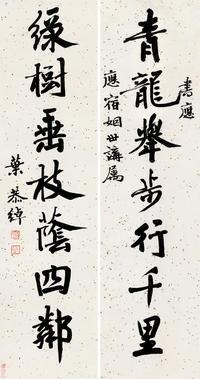 書應
青龍舉步行千里
應宿姻世講屬
綠樹垂枝蔭四鄰
葉恭綽